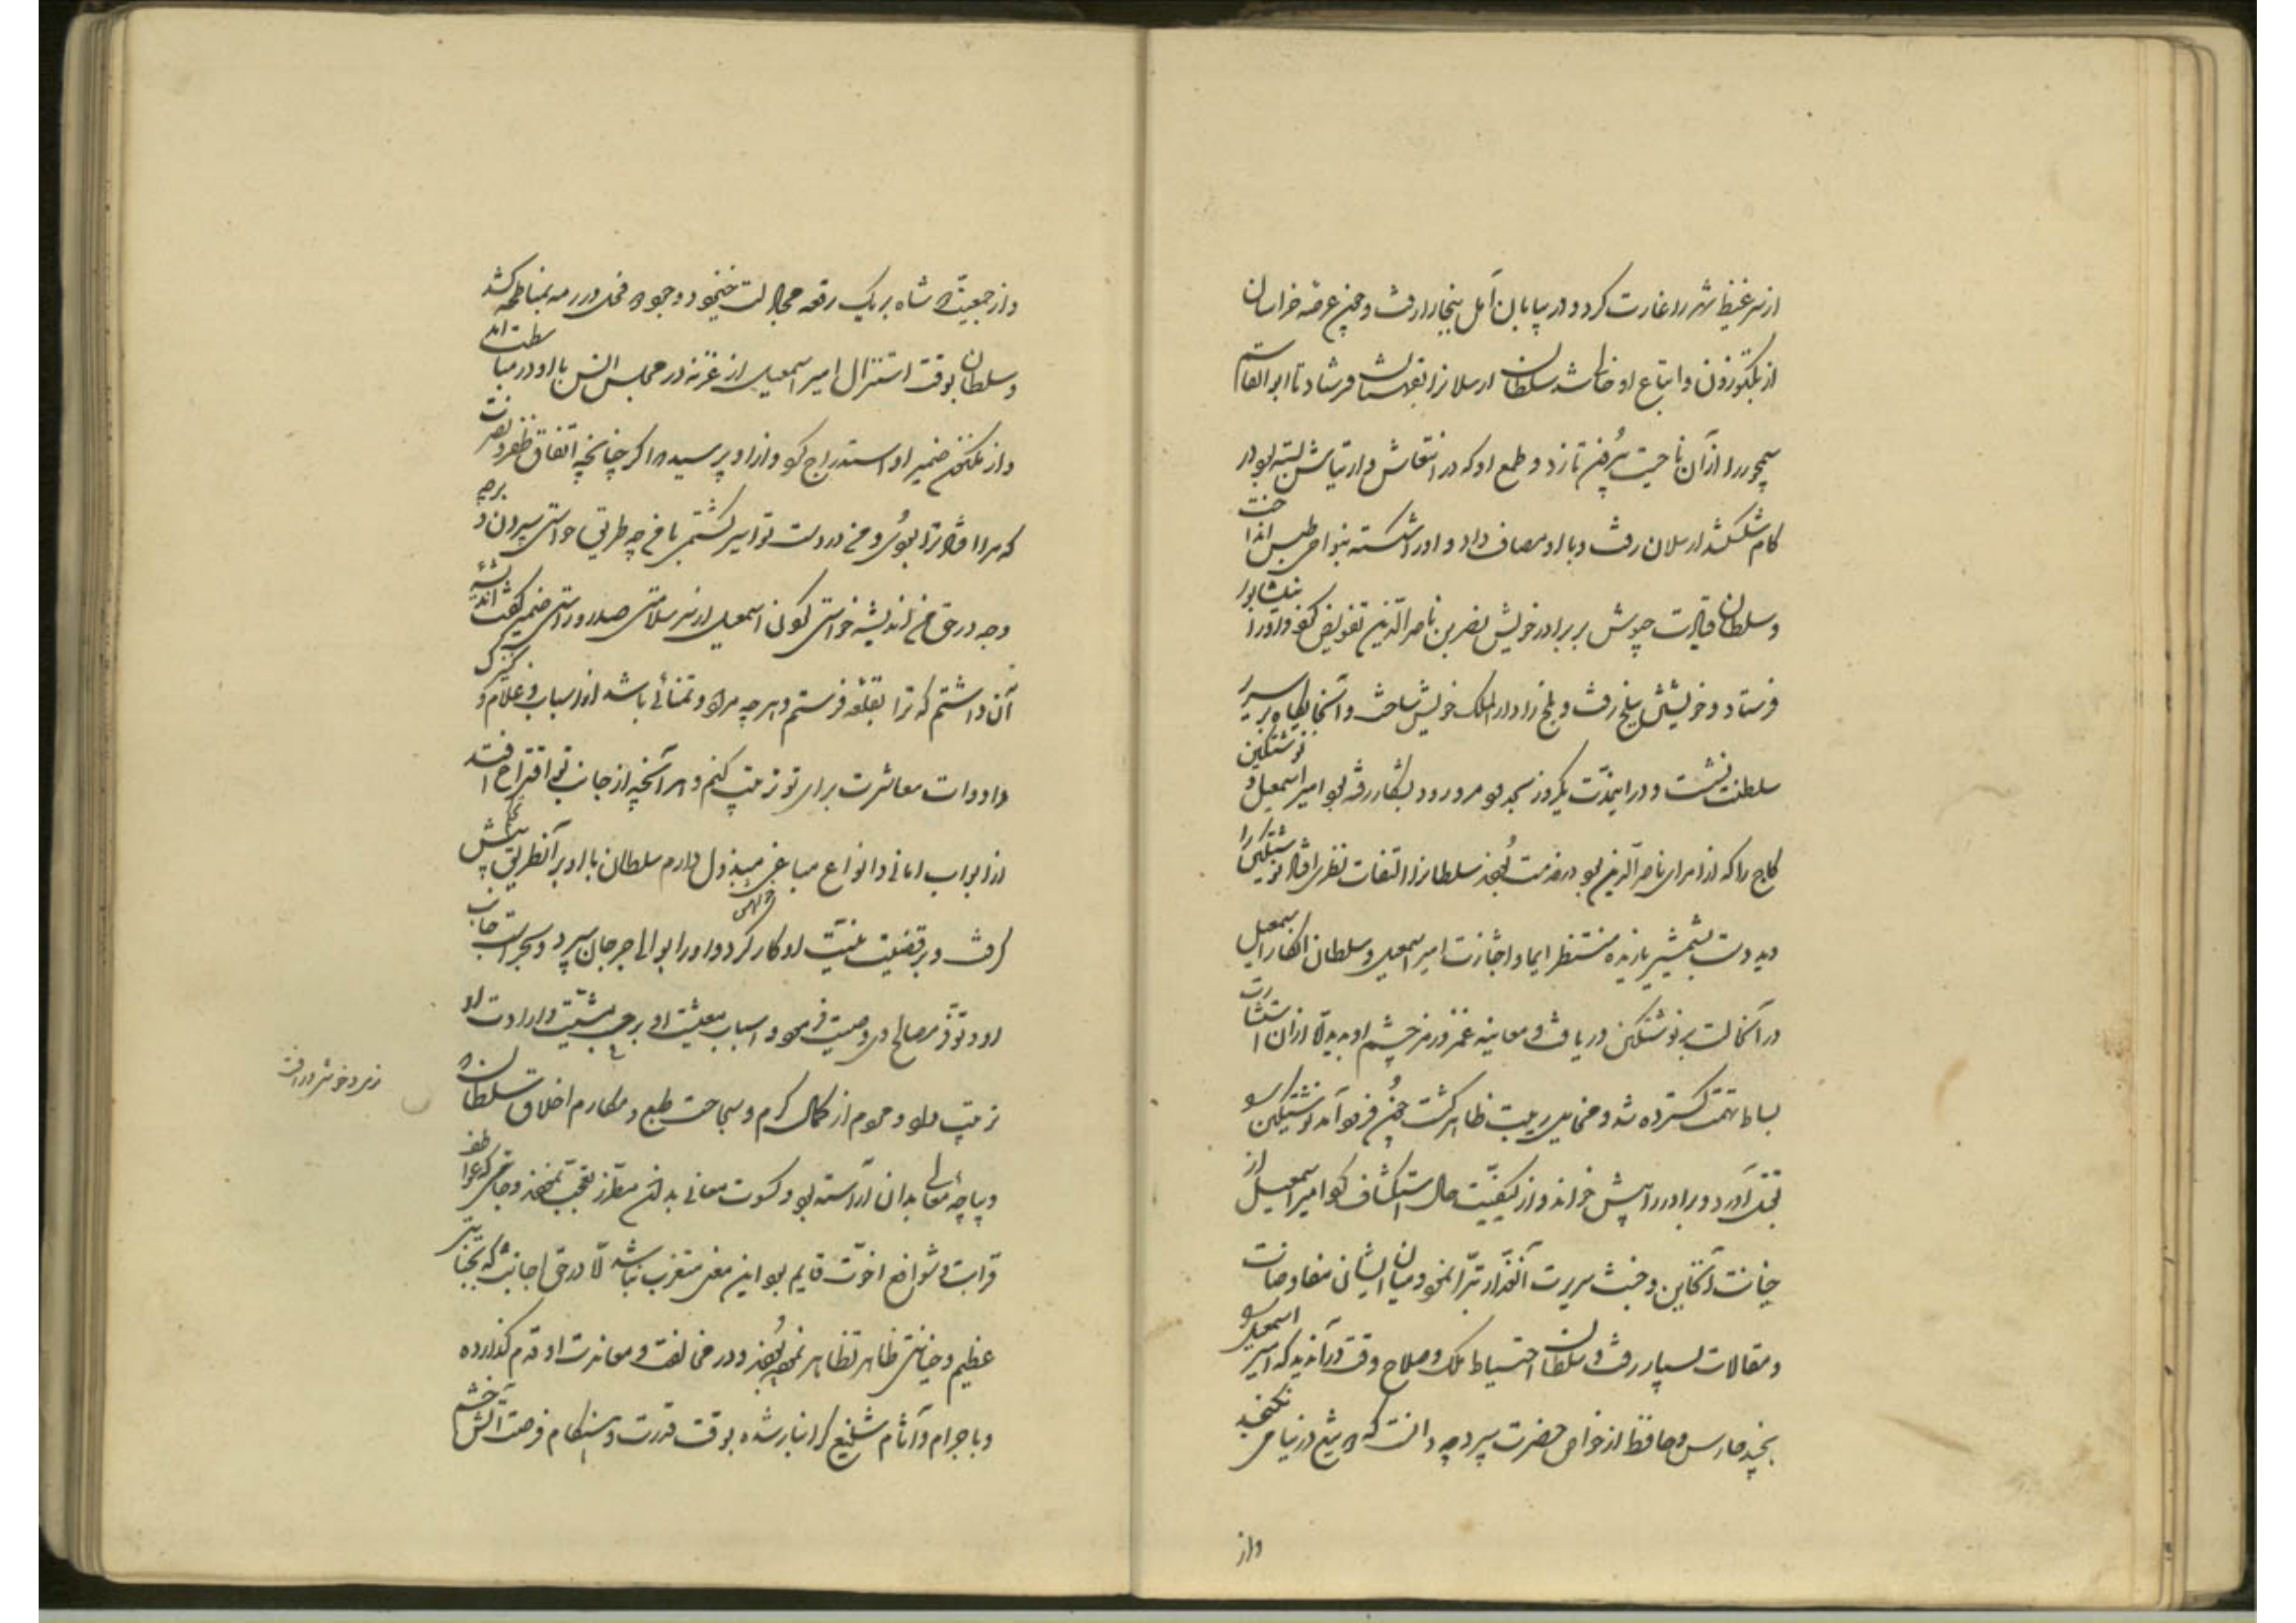 از سر غیظ شهر را غارت کرد و در بیابان آمل ببخارا رفت و چون عرصه خراسان
از بکتوزون و اتباع او خالی شد سلطان ارسلانرا بقهستان فرستاد تا ابوالقاسم
سیمجور را از آن ناحیت بیرون تازد و طمع او که در انتعاش و ارتیاش بسته بود در
کام شکند ارسلان رفت و با او مصاف داد و او را شکسته بنواحی طبس انداخت
و سلطان قیادت جیوش بر برادر خویش نصر بن ناصرالدین تفویض کرد و او را بنیشابور
فرستاد و خویشتن ببلخ رفت و بلخ را دارالملک خویش ساخت و آنجایگاه بر سریر
سلطنت نشست و در این مدت یکروز بحدود مرورود بشکار رفته بود امیر اسمعیل و نوشتکین
کاج را که از امرای ناصرالدین بود در خدمت بودند سلطانرا التفات نظری افتاد نوشتکین را
دید دست بشمشیر یازیده منتظر ایما و اجازت امیر اسمعیل و سلطان انکار اسمعیل
در آنحالت بر نوشتکین دریافت و معاینه غمز و رمز چشم او بدید الا از ان استشارت
بساط تهمت گسترده شد و مخایل ریبت ظاهر گشت چون فرود آمد نوشتکین را
بقتل آورد و برادر را پیش خواند و از کیفیت حال استکشاف کرد امیر اسمعیل از
خیانت آنخاین و خبث سریرت آنغدار تبرا نمود و میان ایشان مفاوضات
و مقالات بسیار رفت و سلطان احتیاط ملک و صلاح وقت در آن دید که امیر اسمعیل را
بچند حارس و حافظ از خواص حضرت سپرد چه دانست که دو تیغ در نیامی نگنجد
واز
و از جمعیت دو شاه بر یک رقعه جز جلالت نخیزد و وجود دو فحل در رمه بمناطحه کشد
و سلطان بوقت استنزال امیر اسمعیل از غزنه در مجلس انس با او در مباسطت امد
و از مکنون ضمیر او استدراج کرد و از او پرسید که اگر چنانچه اتفاق ظفر و نصرت
که مرا افتاد ترا بودی و من در دست تو اسیر گشتمی با من چه طریق خواستی سپردن و برچه
وجه در حق من اندیشه خواستی کردن اسمعیل از سر سلامتی صدر و راستی ضمیر گفت اندیشه
آن داشتم که ترا بقلعه فرستم و هر چه مراد و تمنای باشد از اسباب و غلام و کنیزک
و ادوات معاشرت برای تو ترتیب کنم و هر آنچه از جانب تو اقتراح افتد
از ابواب امانی و انواع مباغی مبذول دارم سلطان با او بر آنطریق پیش
گرفت و بر قضیت نیت او کار کرد و او را بوالی جرجان سپرد و بحراست جانب
او و توفر مصالح او وصیت فرمود و اسباب معیشت او بر حسب مشیت و ارادت او
ترتیب داد و عموم از کمال کرم و سجاحت طبع و مکارم اخلاق سلطان که
زیر و خوشتر در رافت
دیباچه معالی بدان آراسته بود و کسوت معانی بدان مطرز تعجب نمودند و جائی که عواطف
قرابت و شوافع اخوت قایم بود این معنی مستغرب نباشد الا در حق اجانب که بجنایتی
عظیم و خیانتی ظاهر تظاهر نموده بودند و در مخالفت و معاندت او قدم گذارده
و با جرام و آثام شنیع گرانبار شده بوقت قدرت و هنگام فرصت آتش خشم